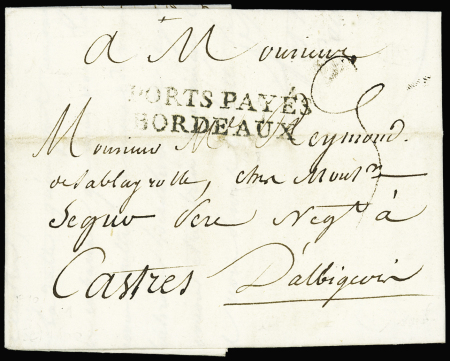 à Monsieur
PORTS PAYÉS
BORDEAUX
Monsieur Mr Reymond
de Sablayrolle, chez Monsr
Seguo Pere Negt à
Castres D'albigeois